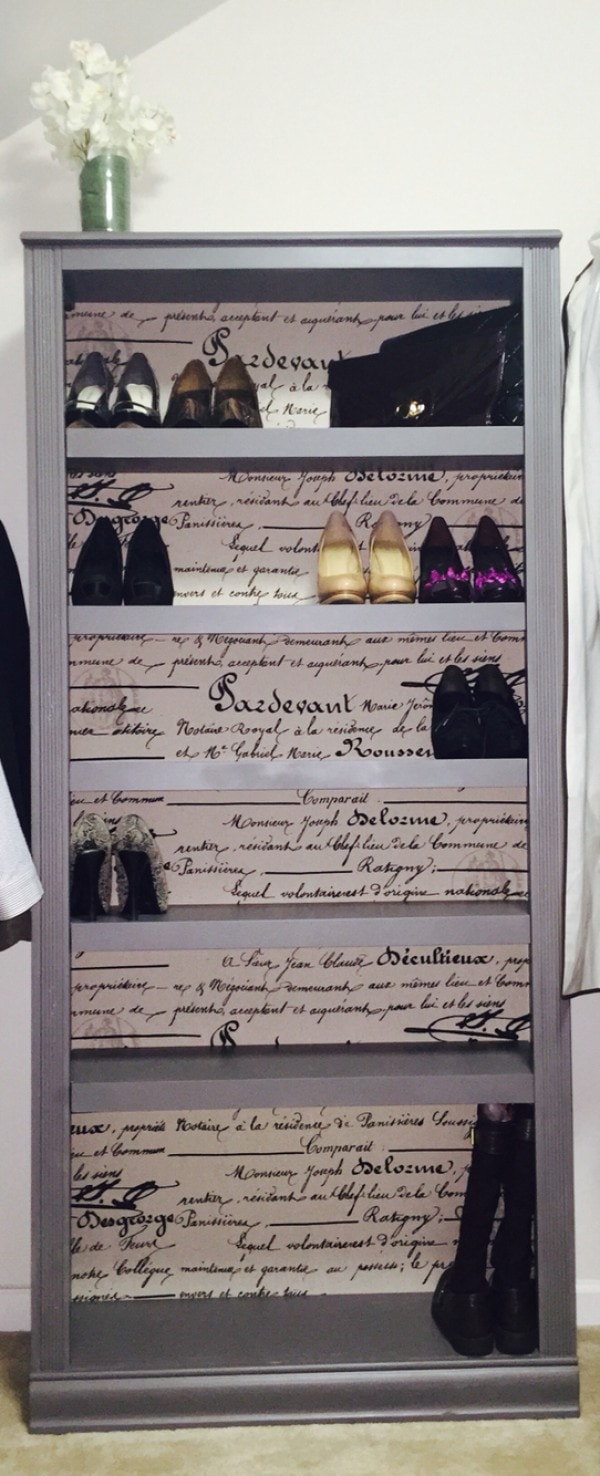 mmune de présents, acceptant et aiquérants pour lui et les
Pardevant
Royal à la
Marie
Monsieur Joseph Delorme, propriétaire
rentier, résidant au Chef lieu de la Commune de
Desgeorge Panissières,
Lequel volont
maintenue et garantie
envers et contre tous
propriétaire re & Négociant demeurant aux mêmes lieu et Comm
mmune de présents, acceptant et aiquérants pour lui et les siens
Pardevant Marie Jérôm
ationale
Notaire Royal à la résidence de la
et Me Gabriel Marie Rousse
ue et Commun Comparait
Monsieur Joseph Delorme, propriétaire
rentier, résidant au Chef lieu de la Commune
Panissières, Ratigny;
Lequel volontairerest d'origine nationale
A Sieur Jean Claude Décultieux, prop
propriétaire re & Négociant demeurant aux mêmes lieu et Comm
mmune de présents, acceptant et aiquérants pour lui et les siens
eux, propriét Notaire à la résidence de Panissières Soussig
ue et Commun Comparait
les siens
Monsieur Joseph Delorme,
rentier, résidant au Chef lieu de la Com
Desgeorge Panissières, Ratigny;
lle de Feurs Lequel volontairerest d'origine
notre Collègue maintenue et garantie au possess; le pr
ssignés envers et contre tous